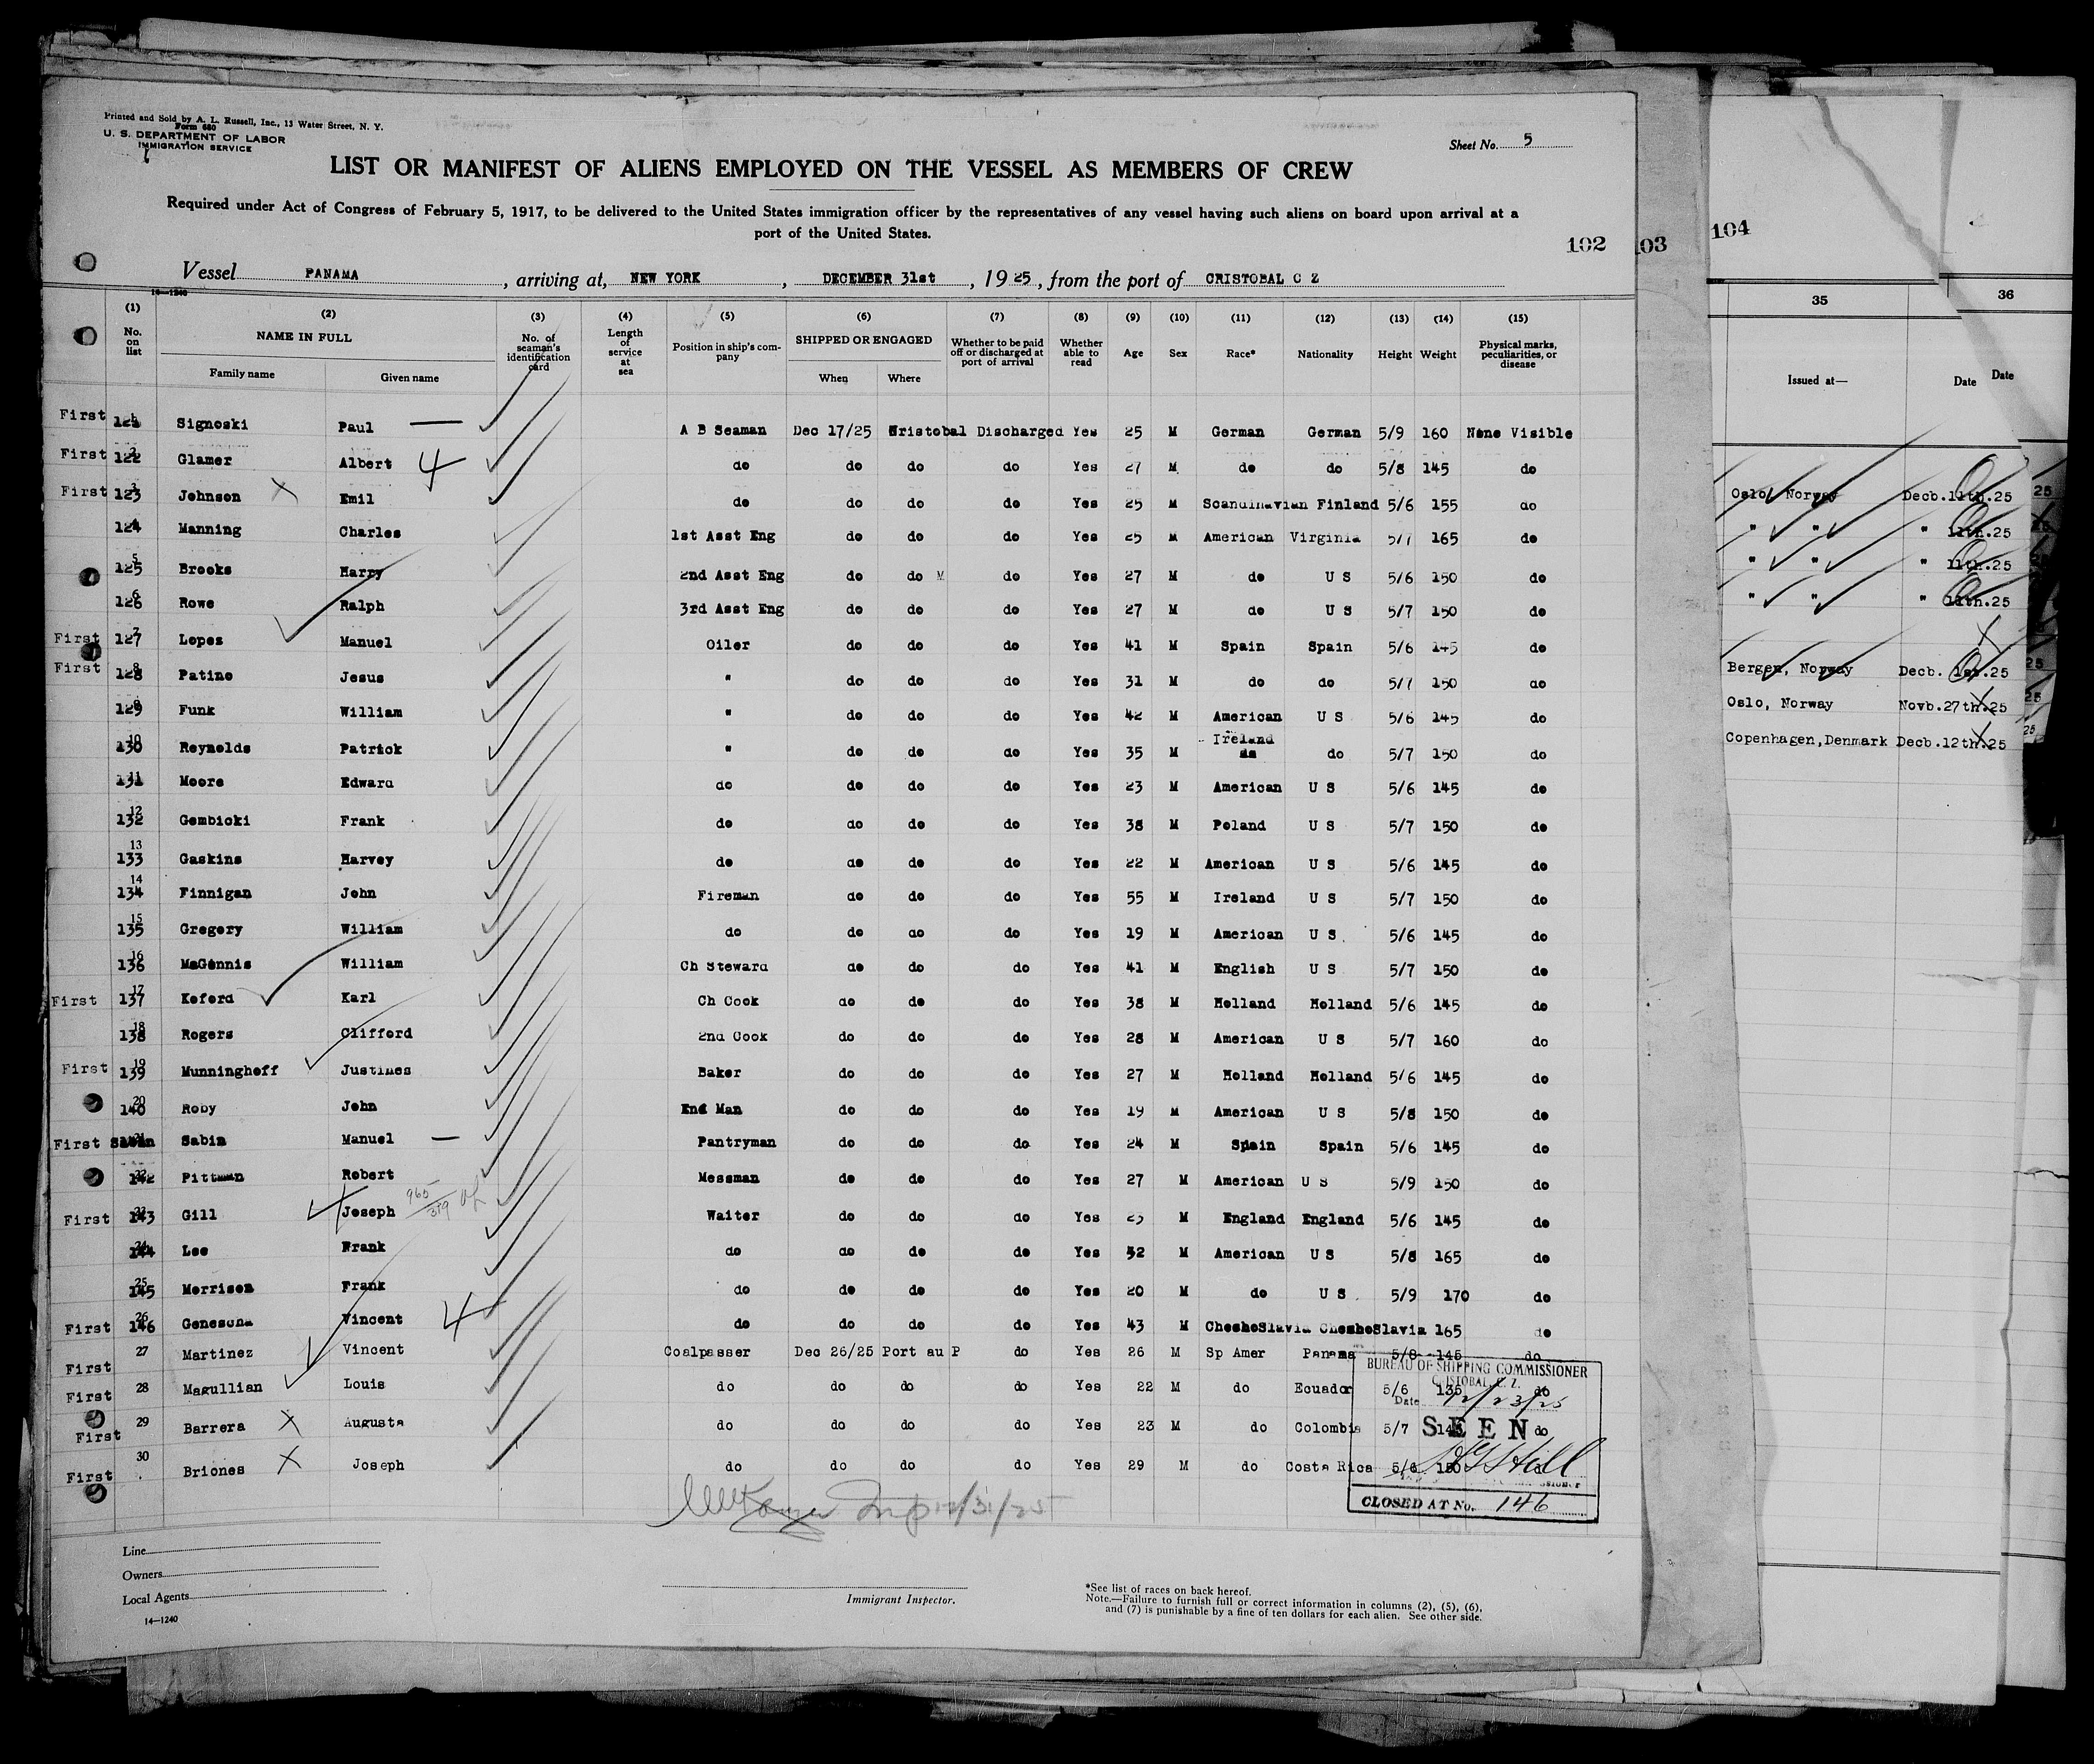 Printed and Sold by A. L. Russell, Inc., 13 Water Street, N. Y.
Form 680
U. S. DEPARTMENT OF LABOR
IMMIGRATION SERVICE
Sheet No. 5
LIST OR MANIFEST OF ALIENS EMPLOYED ON THE VESSEL AS MEMBERS OF CREW
Required under Act of Congress of February 5, 1917, to be delivered to the United States immigration officer by the representatives of any vessel having such aliens on board upon arrival at a
port of the United States.
102 103 104
Vessel PANAMA, arriving at, NEW YORK, DECEMBER 31st, 1925, from the port of CRISTOBAL C Z
14-1240
(1) (2) (3) (4) (5) (6) (7) (8) (9) (10) (11) (12) (13) (14) (15)
No. on list NAME IN FULL No. of seaman's identification card Length of service at sea Position in ship's company SHIPPED OR ENGAGED Whether to be paid off or discharged at port of arrival Whether able to read Age Sex Race* Nationality Height Weight Physical marks, peculiarities, or disease
Family name Given name When Where
First 121 Signoski Paul — A B Seaman Dec 17/25 Cristobal Discharged Yes 25 M German German 5/9 160 None Visible
First 122 2 Glamer Albert 4 do do do do Yes 27 M do do 5/8 145 do
First 123 3 Johnson X Emil do do do do Yes 25 M Scandinavian Finland 5/6 155 do
124 Manning Charles 1st Asst Eng do do do Yes 25 M American Virginia 5/7 165 do
125 5 Brooks Harry 2nd Asst Eng do do M do Yes 27 M do U S 5/6 150 do
126 6 Rowe Ralph 3rd Asst Eng do do do Yes 27 M do U S 5/7 150 do
First 127 7 Lopes Manuel Oiler do do do Yes 41 M Spain Spain 5/6 145 do
First 128 8 Patino Jesus " do do do Yes 31 M do do 5/7 150 do
129 9 Funk William " do do do Yes 42 M American U S 5/6 145 do
130 10 Reynolds Patrick " do do do Yes 35 M Ireland do 5/7 150 do
131 11 Moore Edward do do do do Yes 23 M American U S 5/6 145 do
132 12 Gembicki Frank do do do do Yes 38 M Poland U S 5/7 150 do
133 13 Gaskins Harvey do do do do Yes 22 M American U S 5/6 145 do
134 14 Finnigan John Fireman do do do Yes 55 M Ireland U S 5/7 150 do
135 15 Gregory William do do do do Yes 19 M American U S 5/6 145 do
136 16 McGennis William Ch Steward do do do Yes 41 M English U S 5/7 150 do
First 137 17 Keford Karl Ch Cook do do do Yes 38 M Holland Holland 5/6 145 do
138 18 Rogers Clifford 2nd Cook do do do Yes 28 M American U S 5/7 160 do
First 139 19 Munninghoff Justines Baker do do do Yes 27 M Holland Holland 5/6 145 do
140 20 Roby John End Man do do do Yes 19 M American U S 5/8 150 do
First Sabin Manuel — Pantryman do do do Yes 24 M Spain Spain 5/6 145 do
142 22 Pittman Robert Messman do do do Yes 27 M American U S 5/9 150 do
First 143 Gill Joseph 965/379 Waiter do do do Yes 23 M England England 5/6 145 do
144 24 Lee Frank do do do do Yes 52 M American U S 5/8 165 do
145 25 Morrison Frank do do do do Yes 20 M do U S 5/9 170 do
First 146 26 Genesona Vincent 4 do do do do Yes 43 M CheshoSlavia CheshoSlavia 165 do
First 27 Martinez Vincent Coalpasser Dec 26/25 Port au P do Yes 26 M Sp Amer Panama 5/8 145 do
First 28 Magullian Louis do do do do Yes 22 M do Ecuador 5/6 135 do
First 29 Barrera X Augusta do do do do Yes 23 M do Colombia 5/7 145 do
First 30 Briones X Joseph do do do do Yes 29 M do Costa Rica 5/6 150
BUREAU OF SHIPPING COMMISSIONER
CRISTOBAL, C. Z.
Date 12/23/25
SEEN
CLOSED AT No. 146
12/31/25
Line
Owners
Local Agents
14—1240
Immigrant Inspector.
*See list of races on back hereof.
Note.—Failure to furnish full or correct information in columns (2), (5), (6),
and (7) is punishable by a fine of ten dollars for each alien. See other side.
35 36
Issued at— Date Date
Oslo, Norway Decb.11th.25 25
" " " 11th.25
" " " 11th.25
" " " 11th.25
Bergen, Norway Decb. 1st.25 25
Oslo, Norway Novb.27th.25 25
Copenhagen,Denmark Decb.12th.25 25